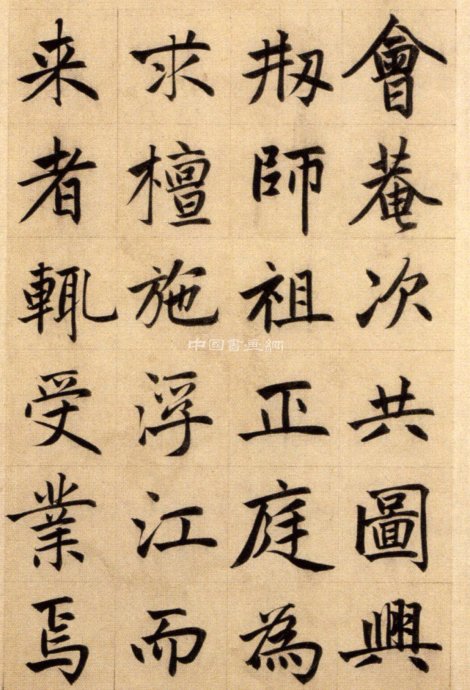 會菴次共圖興
刱師祖正庭為
求檀施浮江而
来者輒受業焉
中国書画網